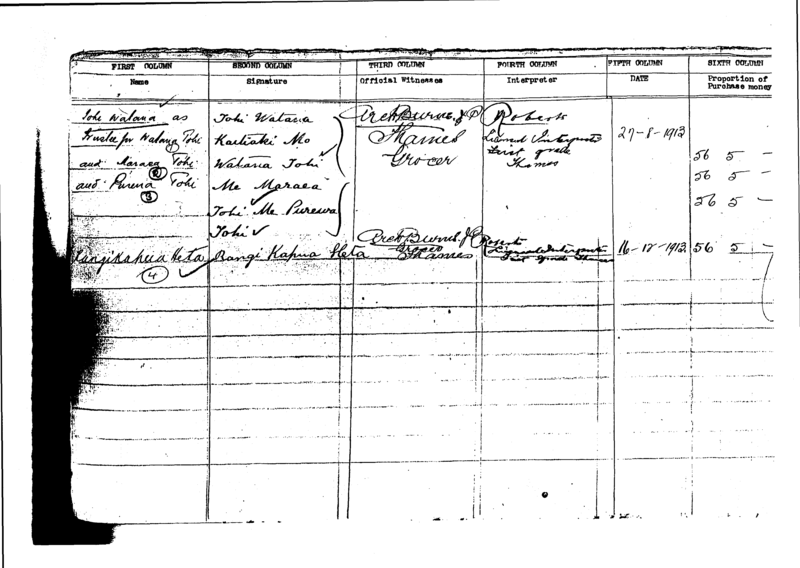 FIRST COLUMN SECOND COLUMN THIRD COLUMN FOURTH COLUMN FIFTH COLUMN SIXTH COLUMN
Name Signature Official Witnesses Interpreter DATE Proportion of Purchase money
Tohi Watana as Tohi Watana Arch Burns. J.P. Roberts
Trustee for Watana Tohi Kaitiaki Mo Thames Licensed Interpreter 27-8-1913
and Maraea Tohi Watana Tohi Grocer First grade Thames 56 5 –
and Purewa Tohi Me Maraea 56 5 –
3 Tohi Me Purewa 56 5 –
Tohi
Arch Burns. J.P. Roberts
Rangikapua Heta Rangi Kapua Heta Grocer Thames Licensed Interpreter First Grade Thames 16-12-1913 56 5 –
4